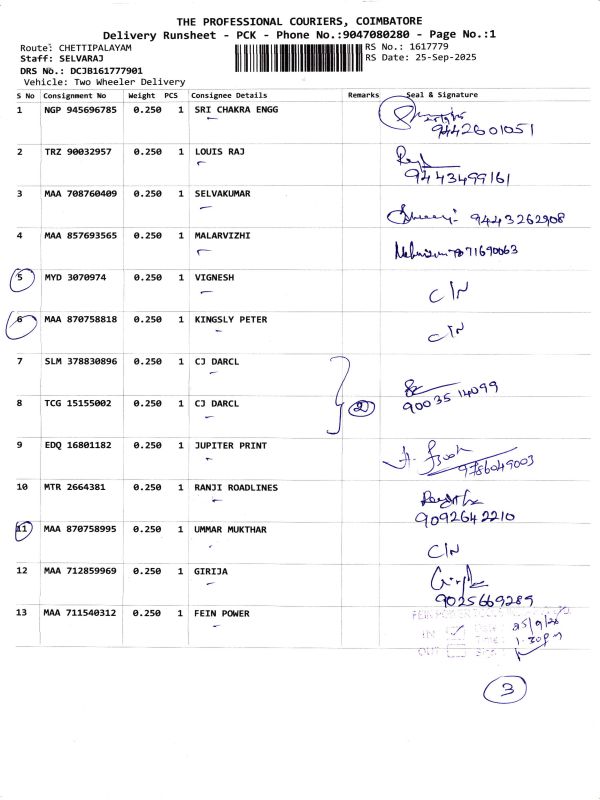 THE PROFESSIONAL COURIERS, COIMBATORE
Delivery Runsheet - PCK - Phone No.:9047080280 - Page No.:1
Route: CHETTIPALAYAM
Staff: SELVARAJ
DRS No.: DCJB161777901
Vehicle: Two Wheeler Delivery
RS No.: 1617779
RS Date: 25-Sep-2025
S No Consignment No Weight PCS Consignee Details Remarks Seal & Signature
1 NGP 945696785 0.250 1 SRI CHAKRA ENGG
9442601051
2 TRZ 90032957 0.250 1 LOUIS RAJ
9443499161
3 MAA 708760409 0.250 1 SELVAKUMAR
9443262908
4 MAA 857693565 0.250 1 MALARVIZHI
7871690063
5 MYD 3070974 0.250 1 VIGNESH
C/N
6 MAA 870758818 0.250 1 KINGSLY PETER
C/N
7 SLM 378830896 0.250 1 CJ DARCL
8 TCG 15155002 0.250 1 CJ DARCL
2
9003514099
9 EDQ 16801182 0.250 1 JUPITER PRINT
9786049003
10 MTR 2664381 0.250 1 RANJI ROADLINES
9092642210
11 MAA 870758995 0.250 1 UMMAR MUKTHAR
C/N
12 MAA 712859969 0.250 1 GIRIJA
9025669289
13 MAA 711540312 0.250 1 FEIN POWER
IN
OUT
3